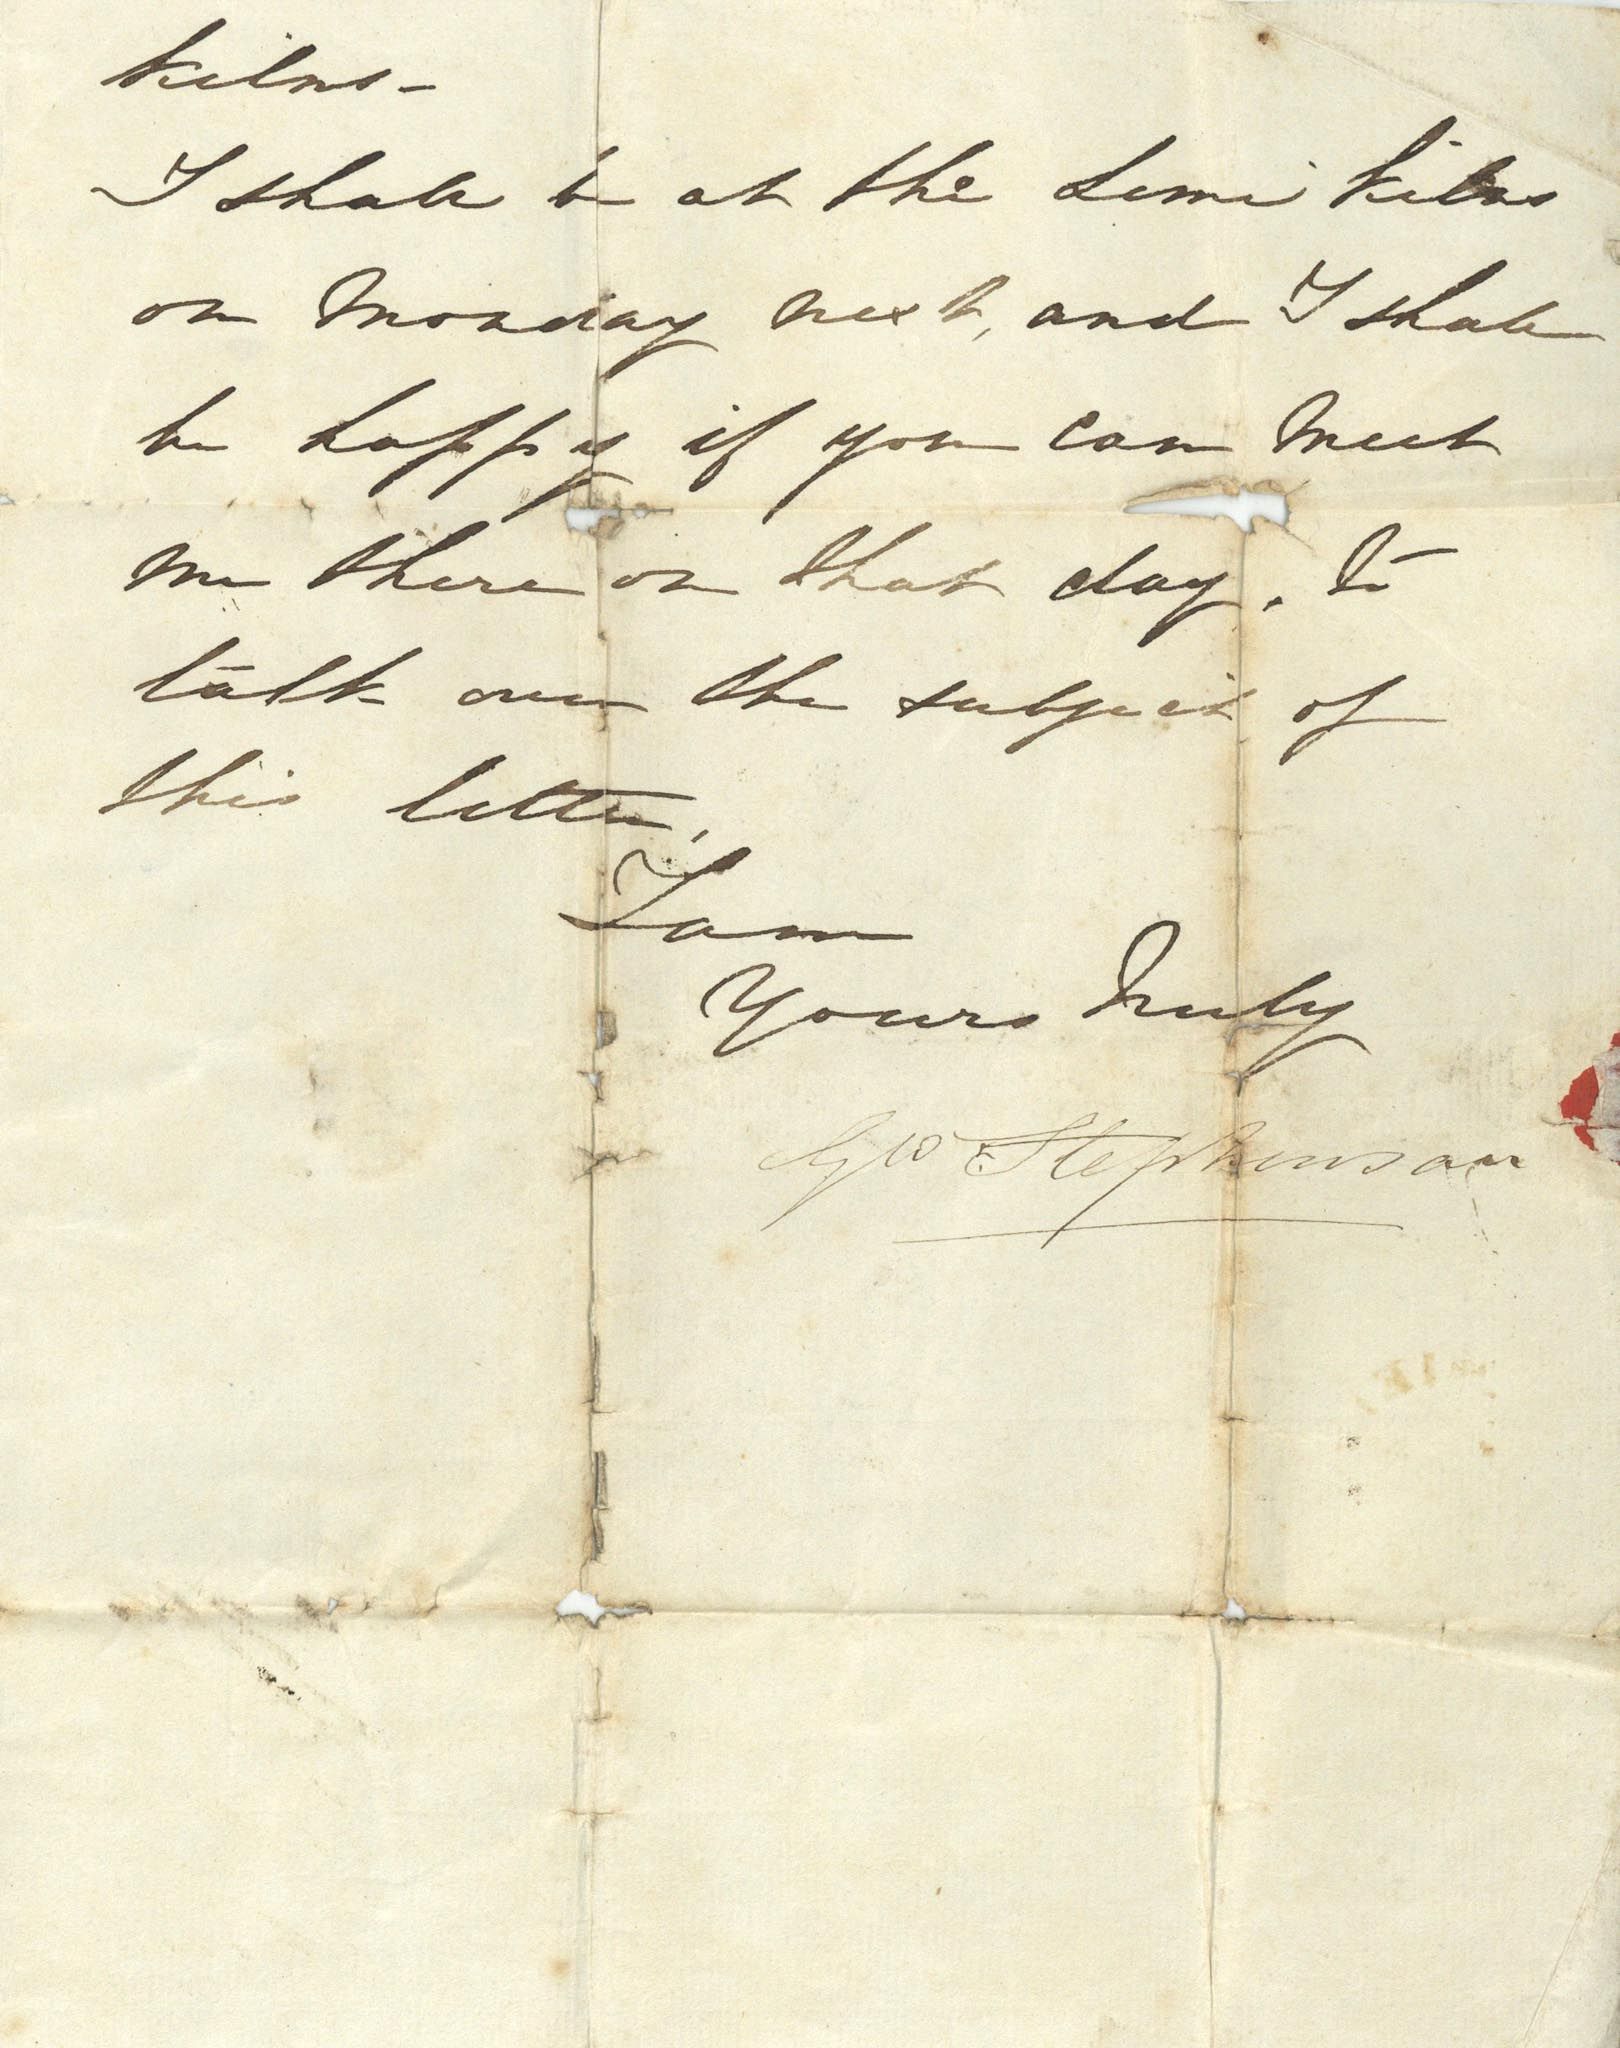 kilns -
I shall be at the Lime kilns
on Monday next, and I shall
be happy if you can meet
me there on that day, to
talk over the subject of
this letter,
I am
Yours truly
Geo Stephenson